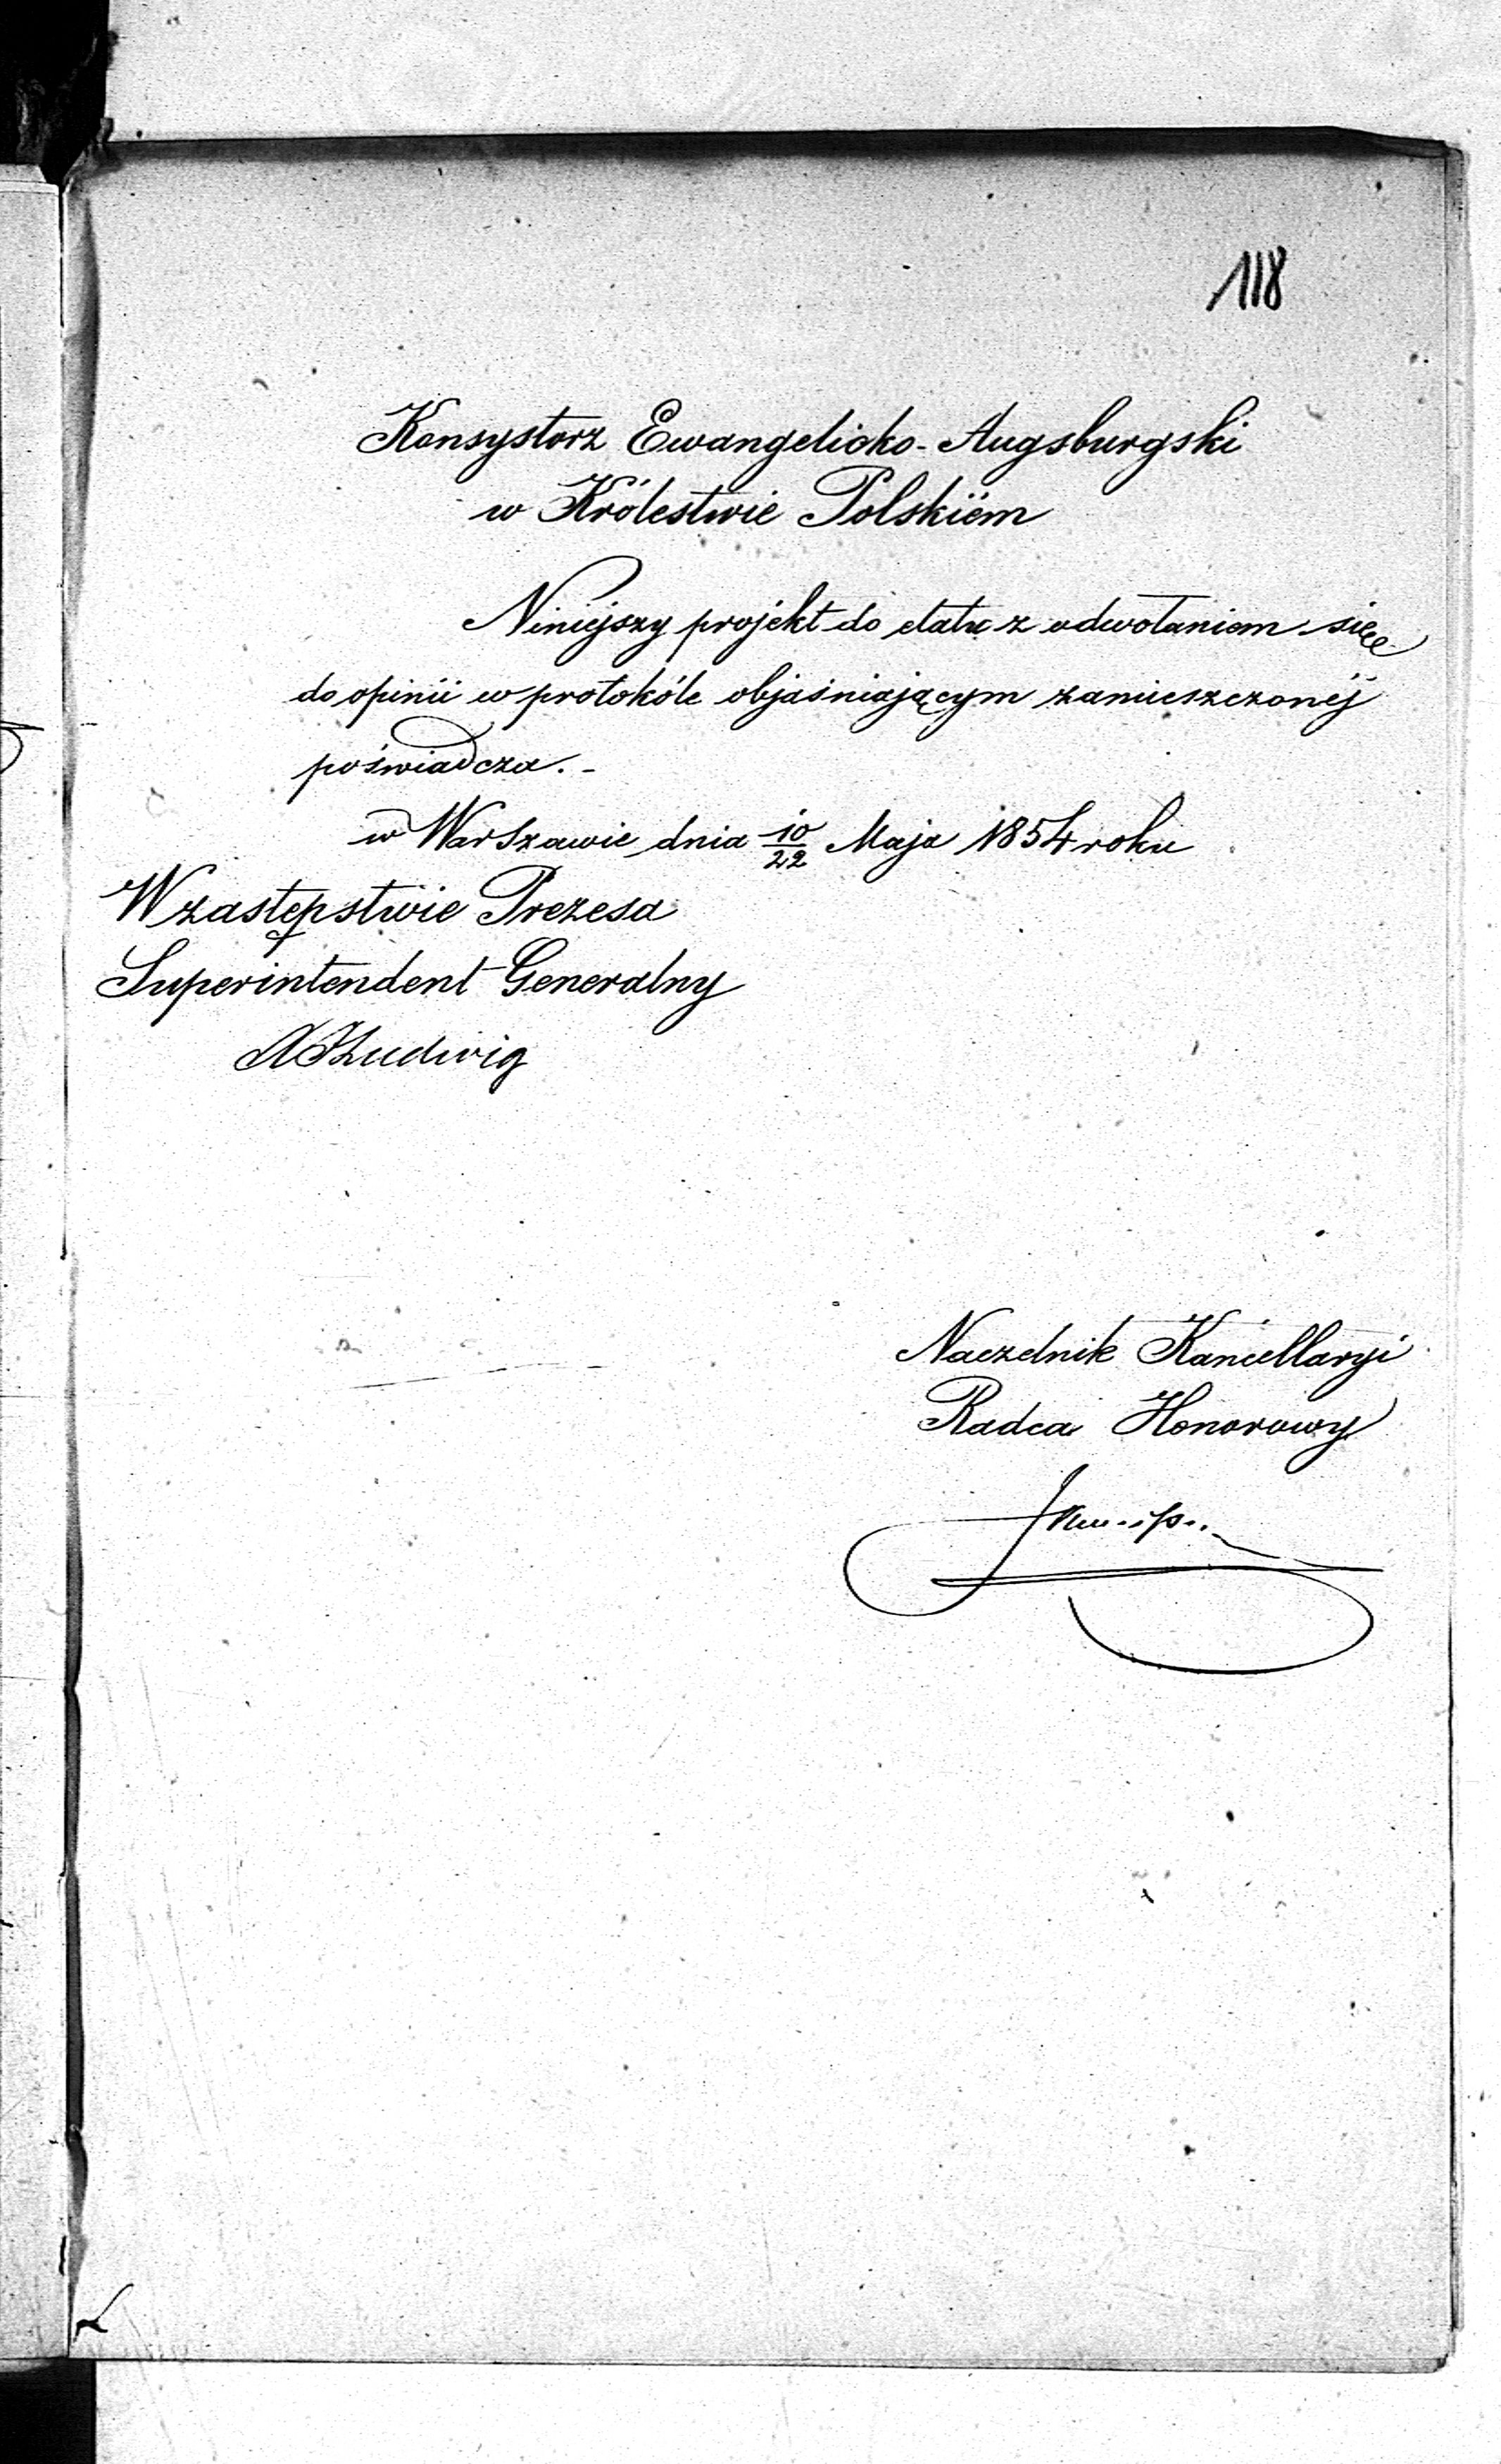 118
Konsystorz Ewangelicko-Augsburgski
w Królestwie Polskiém
Niniejszy projekt do etatu z odwołaniem się
do opinii w protokóle objaśniającym zamieszczonéj
poświadcza. -
w Warszawie dnia 10/22 Maja 1854 roku
W zastępstwie Prezesa
Superintendent Generalny
Ludwig
Naczelnik Kancellaryi
Radca Honorowy